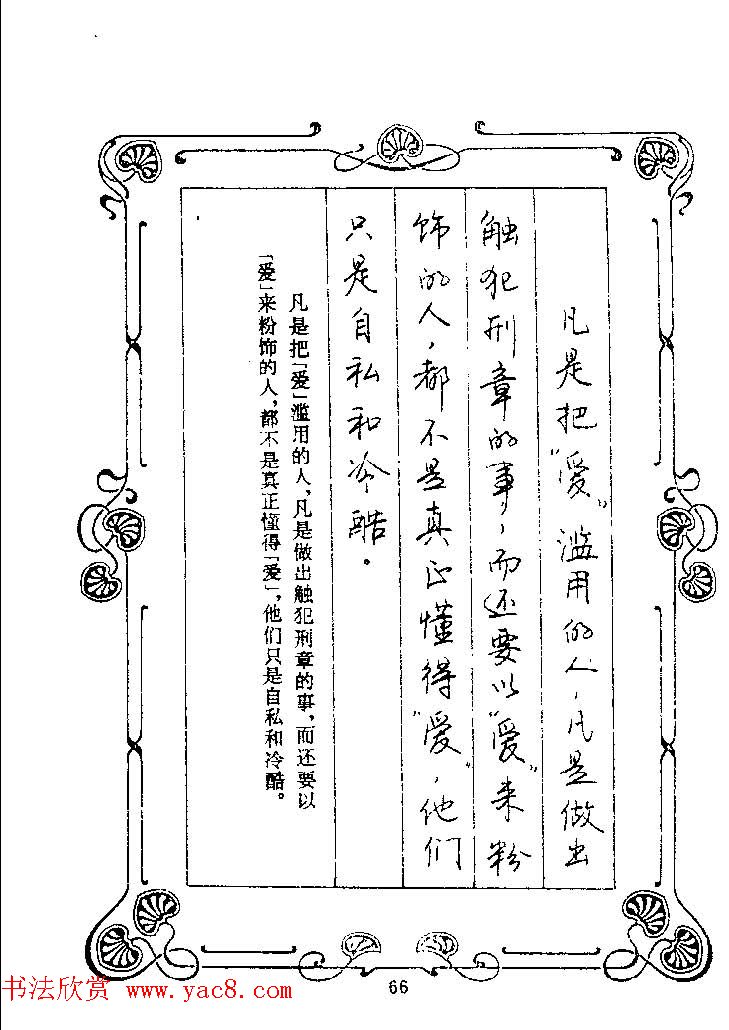 凡是把“爱”滥用的人，凡是做出
触犯刑章的事，而还要以“爱”来粉
饰的人，都不是真正懂得“爱”，他们
只是自私和冷酷。
凡是把「爱」滥用的人，凡是做出触犯刑章的事，而还要以
「爱」来粉饰的人，都不是真正懂得「爱」，他们只是自私和冷酷。
66
书法欣赏 www.yac8.com